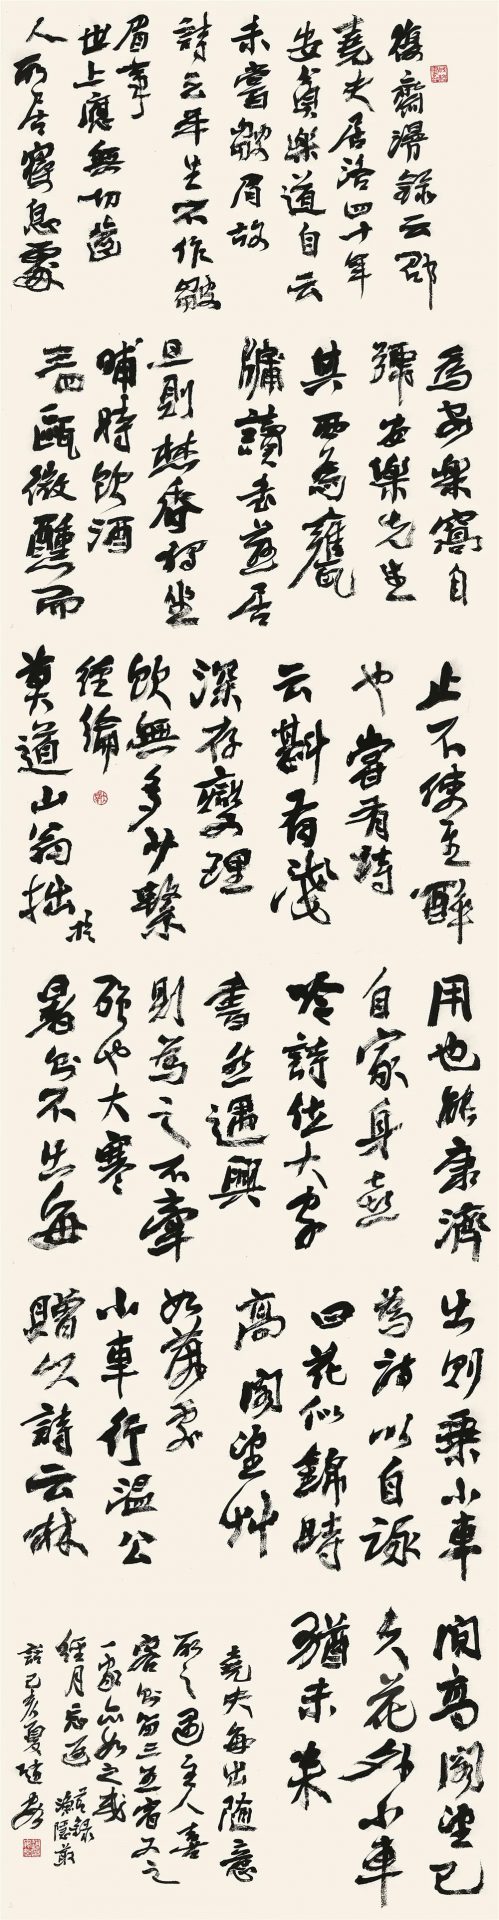 復齋漫錄云邵
堯夫居洛四十年
安貧樂道自云
未嘗皺眉故
詩云平生不作皺
眉事
世上應無切齒
人所居寢息處
為安樂窩自
號安樂先生
其西為甕
牖讀書燕居
旦則焚香獨坐
晡時飲酒
三四甌微醺而
止不使至醉
也嘗有詩
云斟有淺
深存燮理
飲無多少繫
經綸
莫道山翁拙於
用也能康濟
自家身喜
吟詩作大字
書然遇興
則為之不牽
強也大寒
暑則不出每
出則乘小車
為詩以自詠
曰花似錦時
高閣望草
如茵處
小車行溫公
贈以詩云林
間高閣望已
久花外小車
猶未來
堯夫每出隨意
所之遇主人喜
客則留三五宿又之
一家亦如之或
經月忘返 節錄漁隱叢
話己亥夏